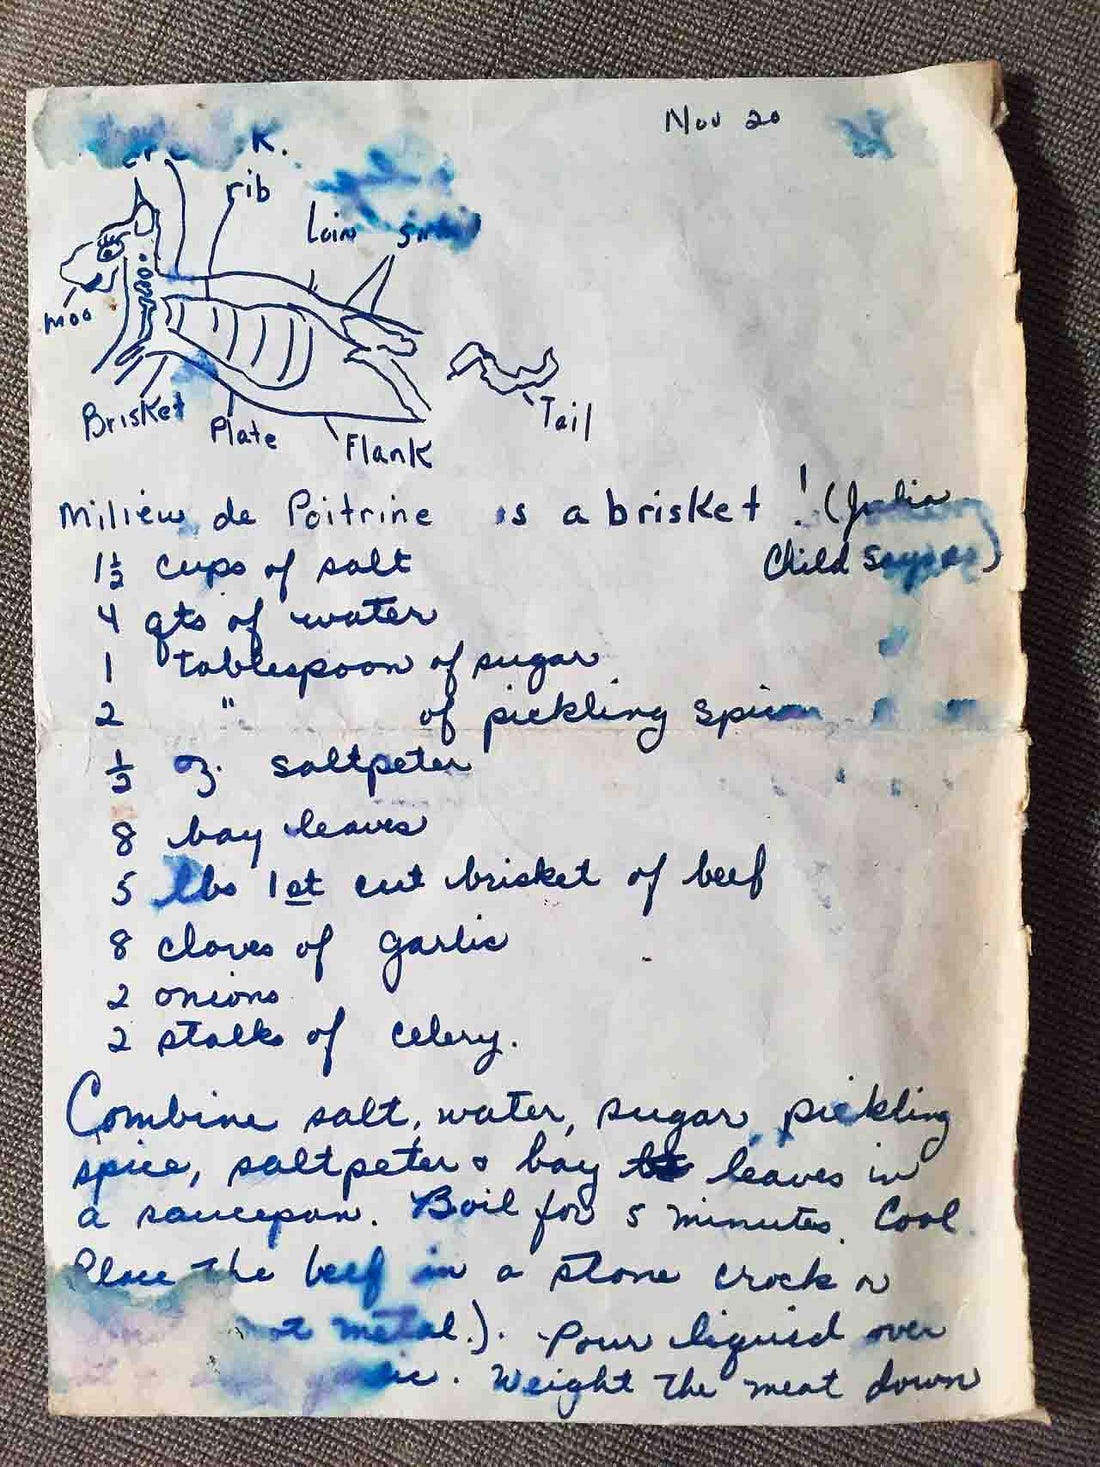 Nov 20
K.
rib
Loin
moo
Brisket
Plate
Flank
Tail
Milieu de Poitrine is a brisket! (Julia
Child says)
1½ cups of salt
4 qts of water
1 tablespoon of sugar
2 " of pickling spice
½ oz. saltpeter
8 bay leaves
5 lbs 1st cut brisket of beef
8 cloves of garlic
2 onions
2 stalks of celery.
Combine salt, water, sugar, pickling
spice, saltpeter & bay leaves in
a saucepan. Boil for 5 minutes. Cool.
Place the beef in a stone crock
not metal.). Pour liquid over
Weight the meat down